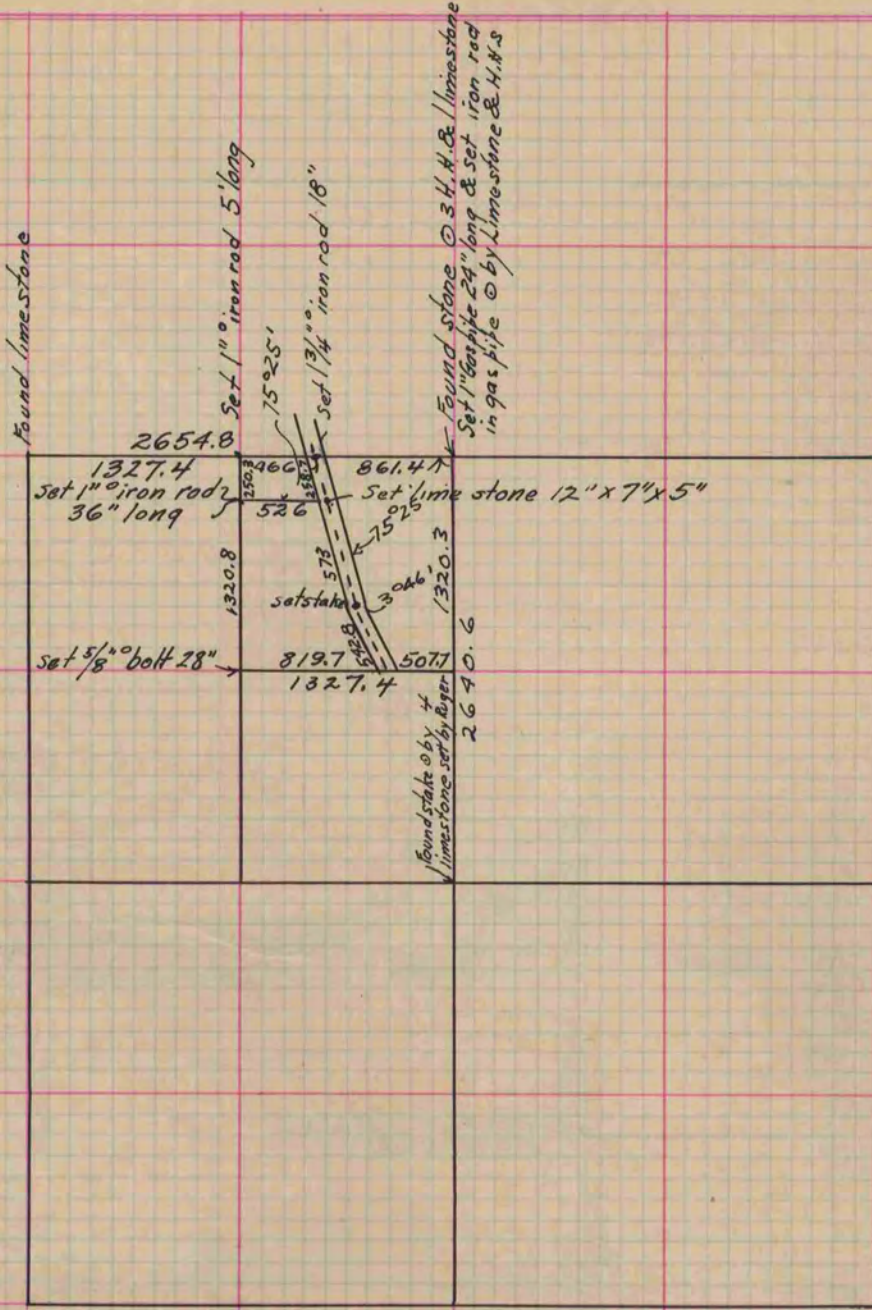 Found limestone
Set 1"° iron rod 5' long
75°25'
Set 1 3/4"° iron rod 18"
Found stone ⊙ 3 H.H. & 1 limestone
Set 1" Gas pipe 24" long & set iron rod
in gas pipe ⊙ by Limestone & H.H.s
2654.8
1327.4
466
861.4
250.3
258.7
Set 1"° iron rod
36" long
526
Set lime stone 12" x 7" x 5"
75°25'
1320.8
573
1320.3
set stake
3°46'
set 5/8"° bolt 28"
819.7
542.8
507.7
1327.4
2640.6
Found stake ⊙ by 4
limestone set by Ruger